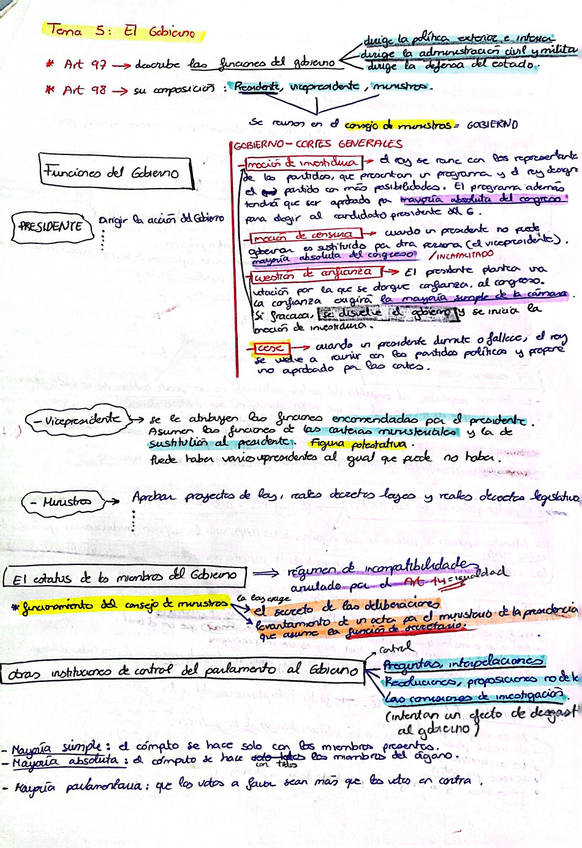 Tema 5: El Gobierno
* Art 97 → describe las funciones del gobierno
dirige la política exterior e interior
dirige la administración civil y milita
dirige la defensa del estado.
* Art 98 → su composición: Presidente, vicepresidente, ministros.
Se reunen en el consejo de ministros = GOBIERNO
Funciones del Gobierno
PRESIDENTE
Dirigir la acción del Gobierno
GOBIERNO - CORTES GENERALES
- moción de investidura → el rey se reune con los representante
de los partidos, que presentan un programa y el rey designa
el partido con más posibilidades. El programa además
tendrá que ser aprobado por mayoría absoluta del congreso
para elegir al candidato presidente del G.
- moción de censura → cuando un presidente no puede
gobernar es sustituido por otra persona (el vicepresidente).
mayoría absoluta del congreso / INCAPACITADO
- cuestión de confianza → El presidente plantea una
votación por la que se otorgue confianza, al congreso.
La confianza exigirá la mayoría simple de la cámara.
Si fracasa, se disuelve el gobierno y se inicia la
moción de investidura.
- cese → cuando un presidente dimite o fallece, el rey
se vuelve a reunir con los partidos políticos y propone
uno aprobado por las cortes.
- Vicepresidente → se le atribuyen las funciones encomendadas por el presidente.
Asumen las funciones de las carteras ministeriales y la de
sustitución al presidente. Figura potestativa.
Puede haber varios vpresidentes al igual que puede no haber.
- Ministros → Aprobar proyectos de ley, reales decretos leyes y reales decretos legislativo
El estatus de los miembros del Gobierno ⇒ régimen de incompatibilidades
anulado por el Art 14 = igualdad
* funcionamiento del consejo de ministros
la ley exige
el secreto de las deliberaciones
levantamiento de un acta por el ministerio de la presidencia
que asume la función de secretario.
otras instituciones de control del parlamento al Gobierno
control
Preguntas, interpelaciones
Resoluciones, proposiciones no de le
Las comisiones de investigación
(intentan un efecto de desgast
al gobierno)
- Mayoría simple: el cómputo se hace solo con los miembros presentes.
- Mayoría absoluta: el cómputo se hace con todos los miembros del órgano.
- Mayoría parlamentaria: que los votos a favor sean más que los votos en contra.